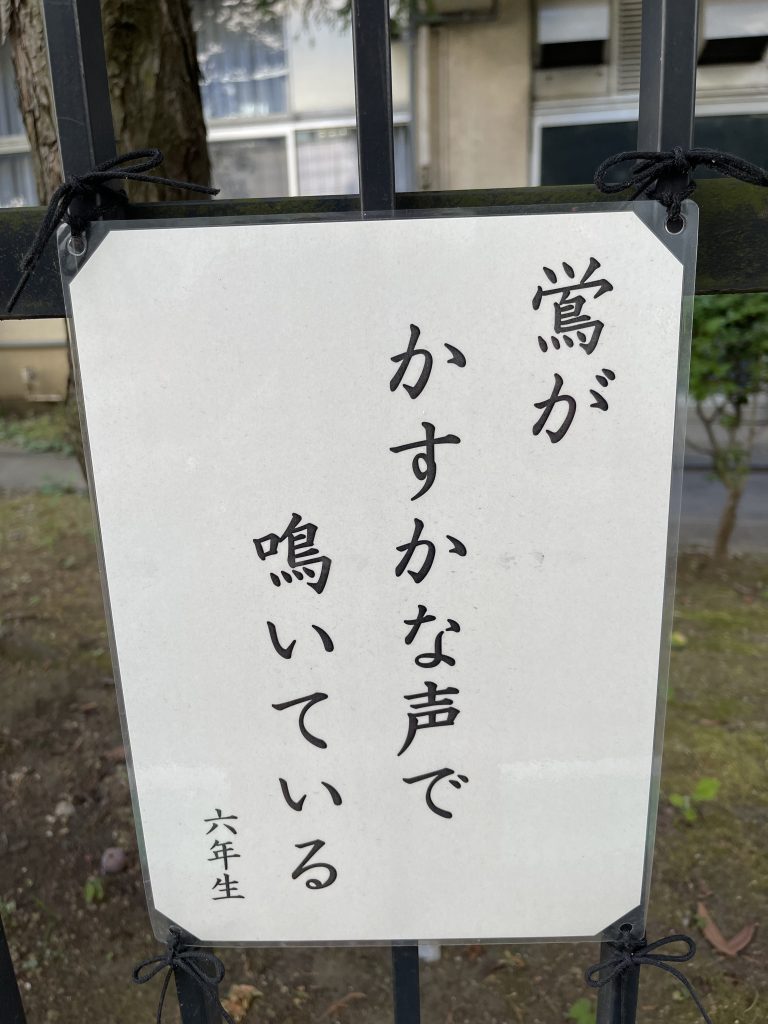 鶯が
かすかな声で
鳴いている
六年生